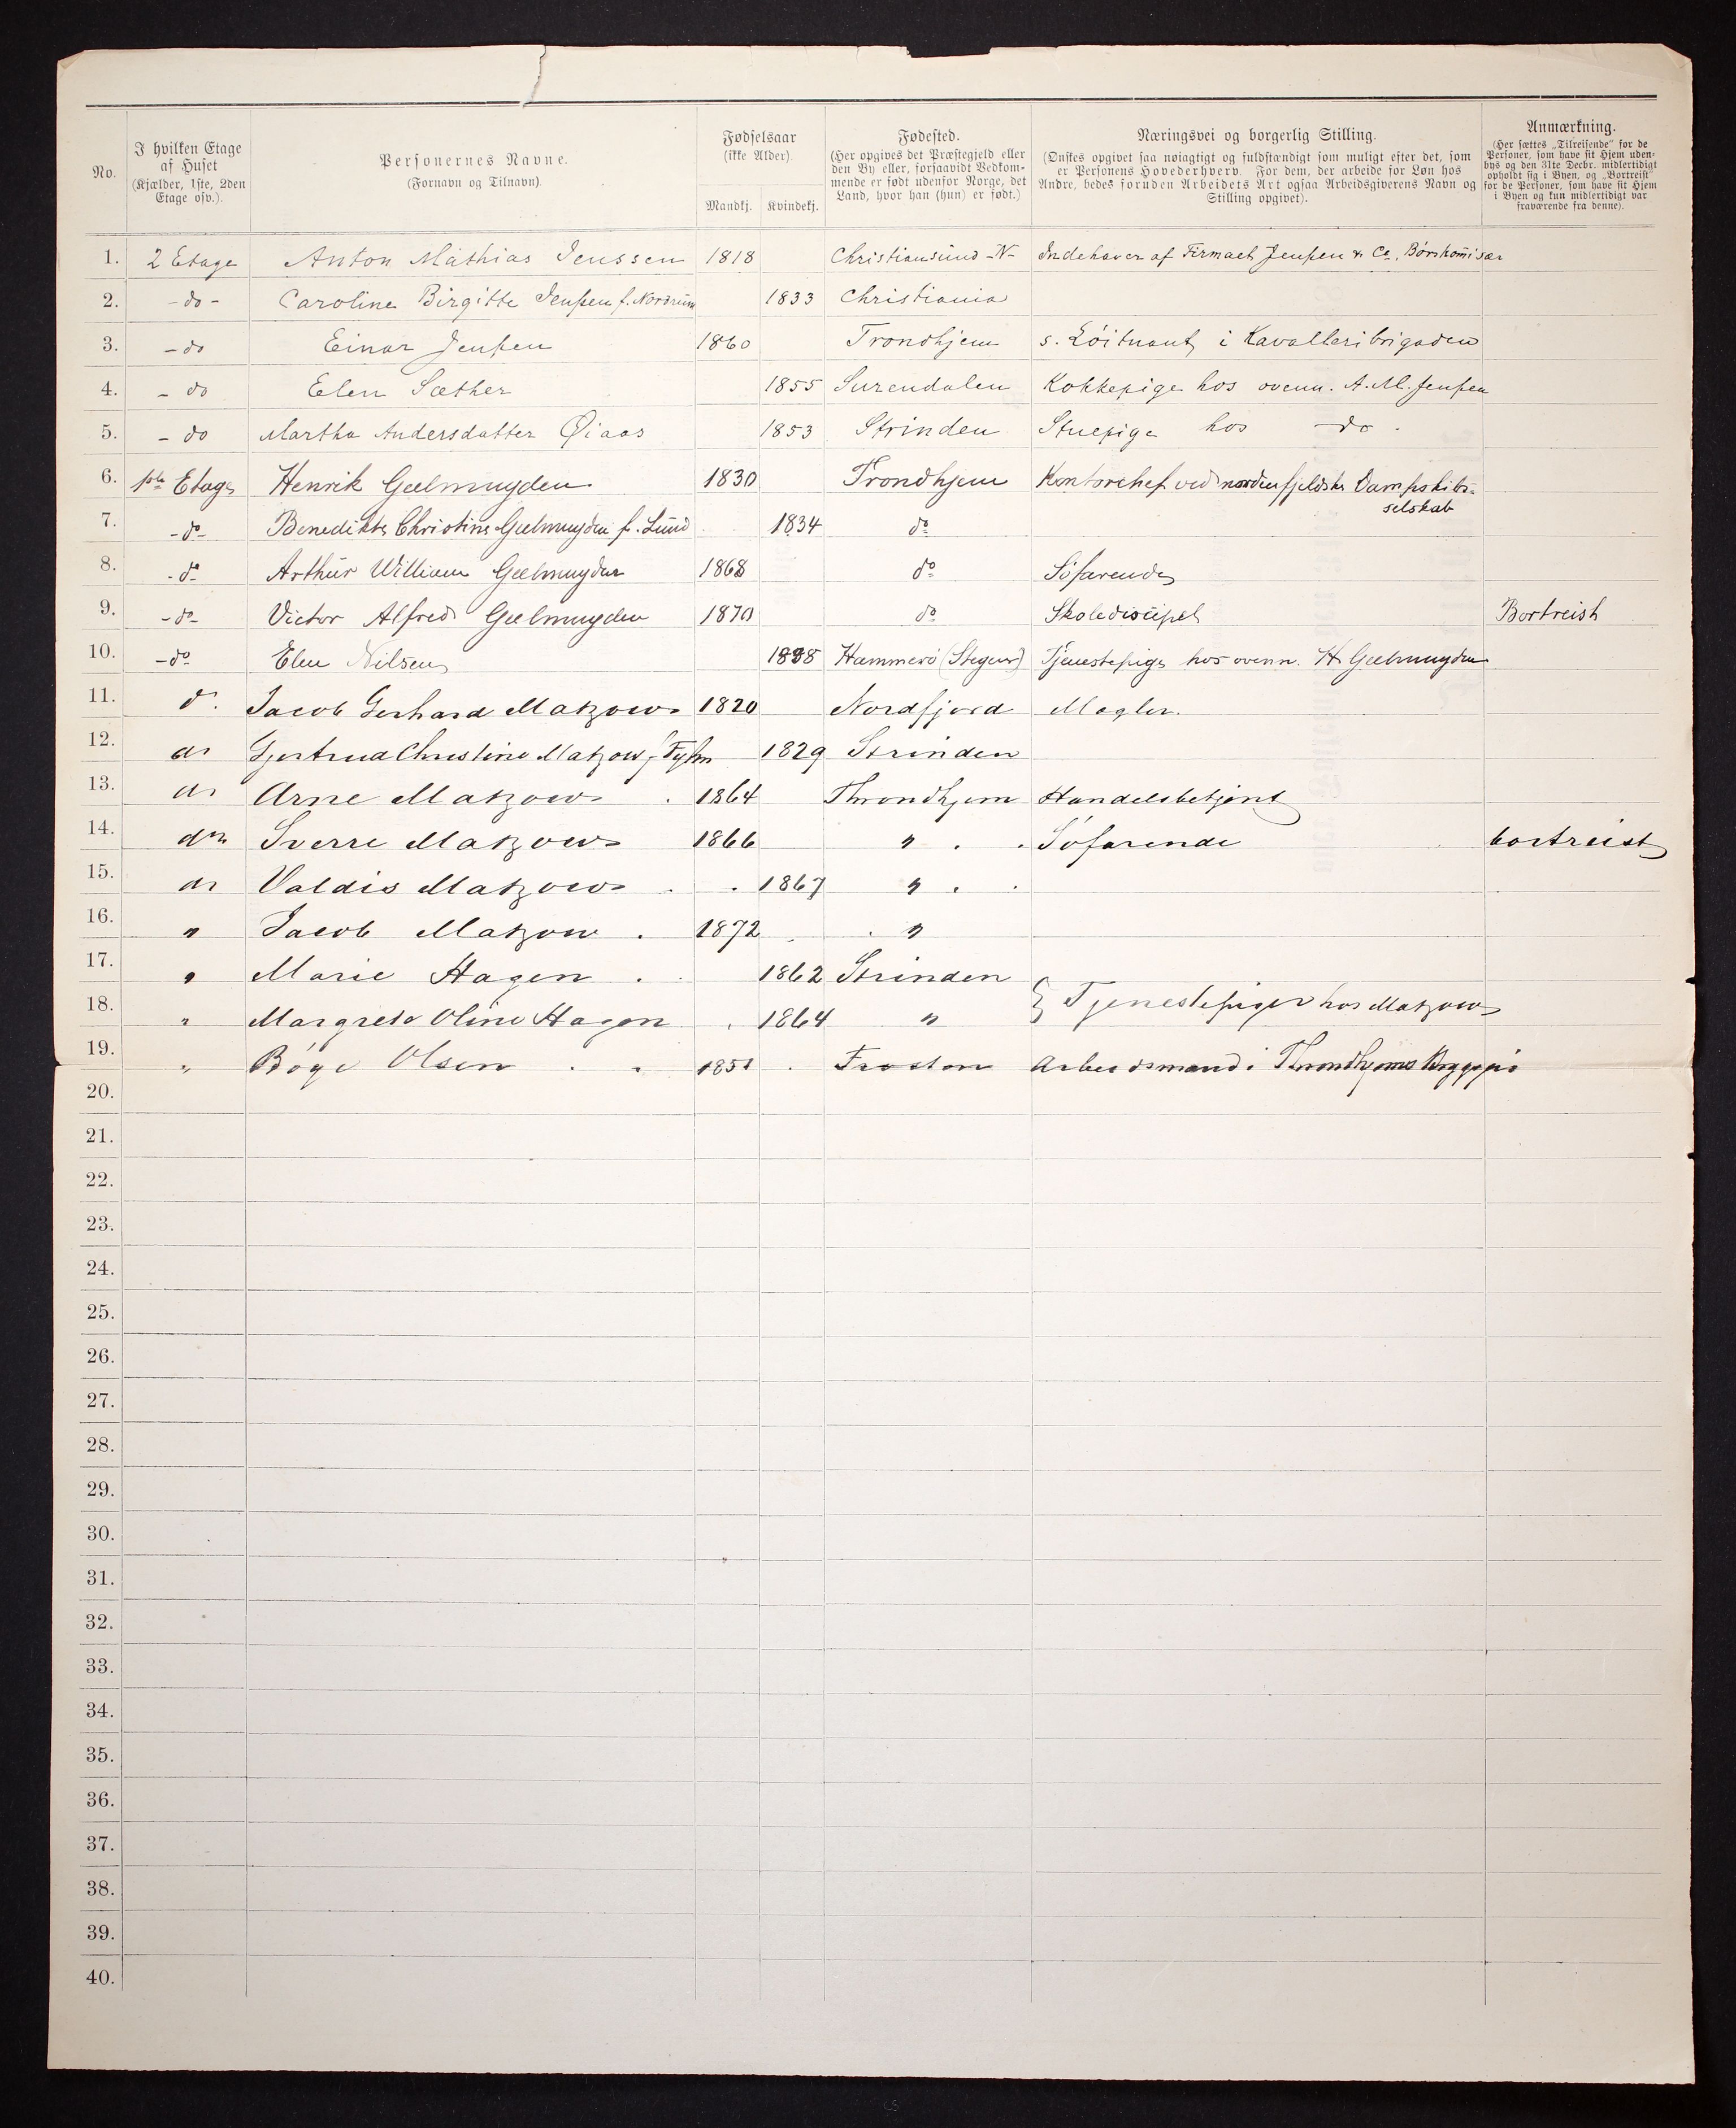 No.
I hvilken Etage af Huset (Kjælder, 1ste, 2den Etage osv.).
Personernes Navne. (Fornavn og Tilnavn).
Fødselsaar (ikke Alder).
Mandkj. Kvindekj.
Fødested. (Her opgives det Præstegjeld eller den By eller, forsaavidt Vedkommende er født udenfor Norge, det Land, hvor han (hun) er født.)
Næringsvei og borgerlig Stilling. (Ønskes opgivet saa nøiagtigt og fuldstændigt som muligt efter det, som er Personens Hovederhverv. For dem, der arbeide for Løn hos Andre, bedes foruden Arbeidets Art ogsaa Arbeidsgiverens Navn og Stilling opgivet).
Anmærkning. (Her sættes „Tilreisende" for de Personer, som have sit Hjem udenbys og den 31te Decbr. midlertidigt opholdt sig i Byen, og „Bortreist" for de Personer, som have sit Hjem i Byen og kun midlertidigt var fraværende fra denne).
1. 2 Etage Anton Mathias Jenssen 1818 Christiansund -N- Indehaver af Firmaet Jenssen & Co, Børskomisær
2. -do- Caroline Birgitte Jenssen f. Nordrum 1833 Christiania
3. -do Einar Jenssen 1860 Trondhjem s. Löitnant i Kavalleribrigaden
4. - do Elen Sæther 1855 Surendalen Kokkepige hos ovenn. A. M. Jenssen
5. - do Martha Andersdatter Øiaas 1853 Strinden Stuepige hos - do -
6. 1ste Etage Henrik Geelmuyden 1830 Trondhjem Kontorchef ved nordenfjeldske Dampskibs-
selskab
7. -do- Benedikte Christine Geelmuyden f. Lund 1834 do
8. -do- Arthur William Geelmuyden 1868 do Söfarende
9. -do- Victor Alfred Geelmuyden 1870 do Skolediscipel Bortreist
10. -do Elen Nilsen Hammerö (Stegen) Tjenestepige hos ovenn. H. Geelmuyden
11. do. Jacob Gerhard Matzow 1820 Nordfjord Mægler.
12. do Gjertrud Christine Matzow f. 1829 Strinden
13. do Arne Matzow 1864 Throndhjem Handelsbetjent
14. do Sverre Matzow 1866 " Söfarende bortreist
15. do Valdis Matzow 1867 "
16. " Jacob Matzow 1872 "
17. " Marie Hagen 1862 Strinden
18. " Margrete Oline Hagen 1864 " } Tjenestepiger hos Matzow
19. " Böye Olsen 1851 Frosten Arbeidsmand i Throndhjems
20.
21.
22.
23.
24.
25.
26.
27.
28.
29.
30.
31.
32.
33.
34.
35.
36.
37.
38.
39.
40.